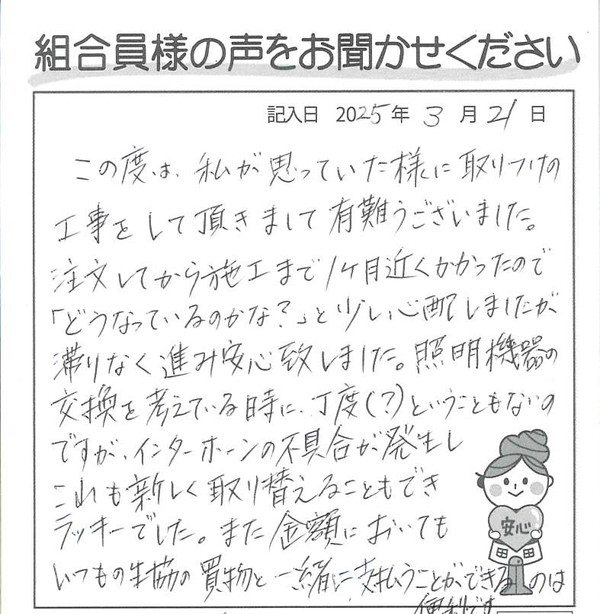 組合員様の声をお聞かせください
記入日 2025年 3月 21日
この度は、私が思っていた様に取りつけの
工事をして頂きまして有難うございました。
注文してから施工まで1ヶ月近くかかったので
「どうなっているのかな?」と少い心配しましたが
滞りなく進み安心致しました。照明機器の
交換を考えている時に、丁度(?)ということもないの
ですが、インターホーンの不具合が発生し
これも新しく取り替えることもでき
ラッキーでした。また金額においても
いつもの生協の買物と一緒に支払うことができるのは
便利です
安心